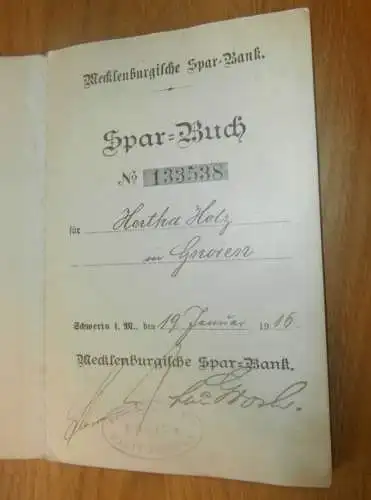 Mecklenburgische Spar-Bank.
Spar-Buch
No 133538
für Hertha Holz
in Gnoien
Schwerin i. M., den 19 Januar 1916.
Mecklenburgische Spar-Bank.